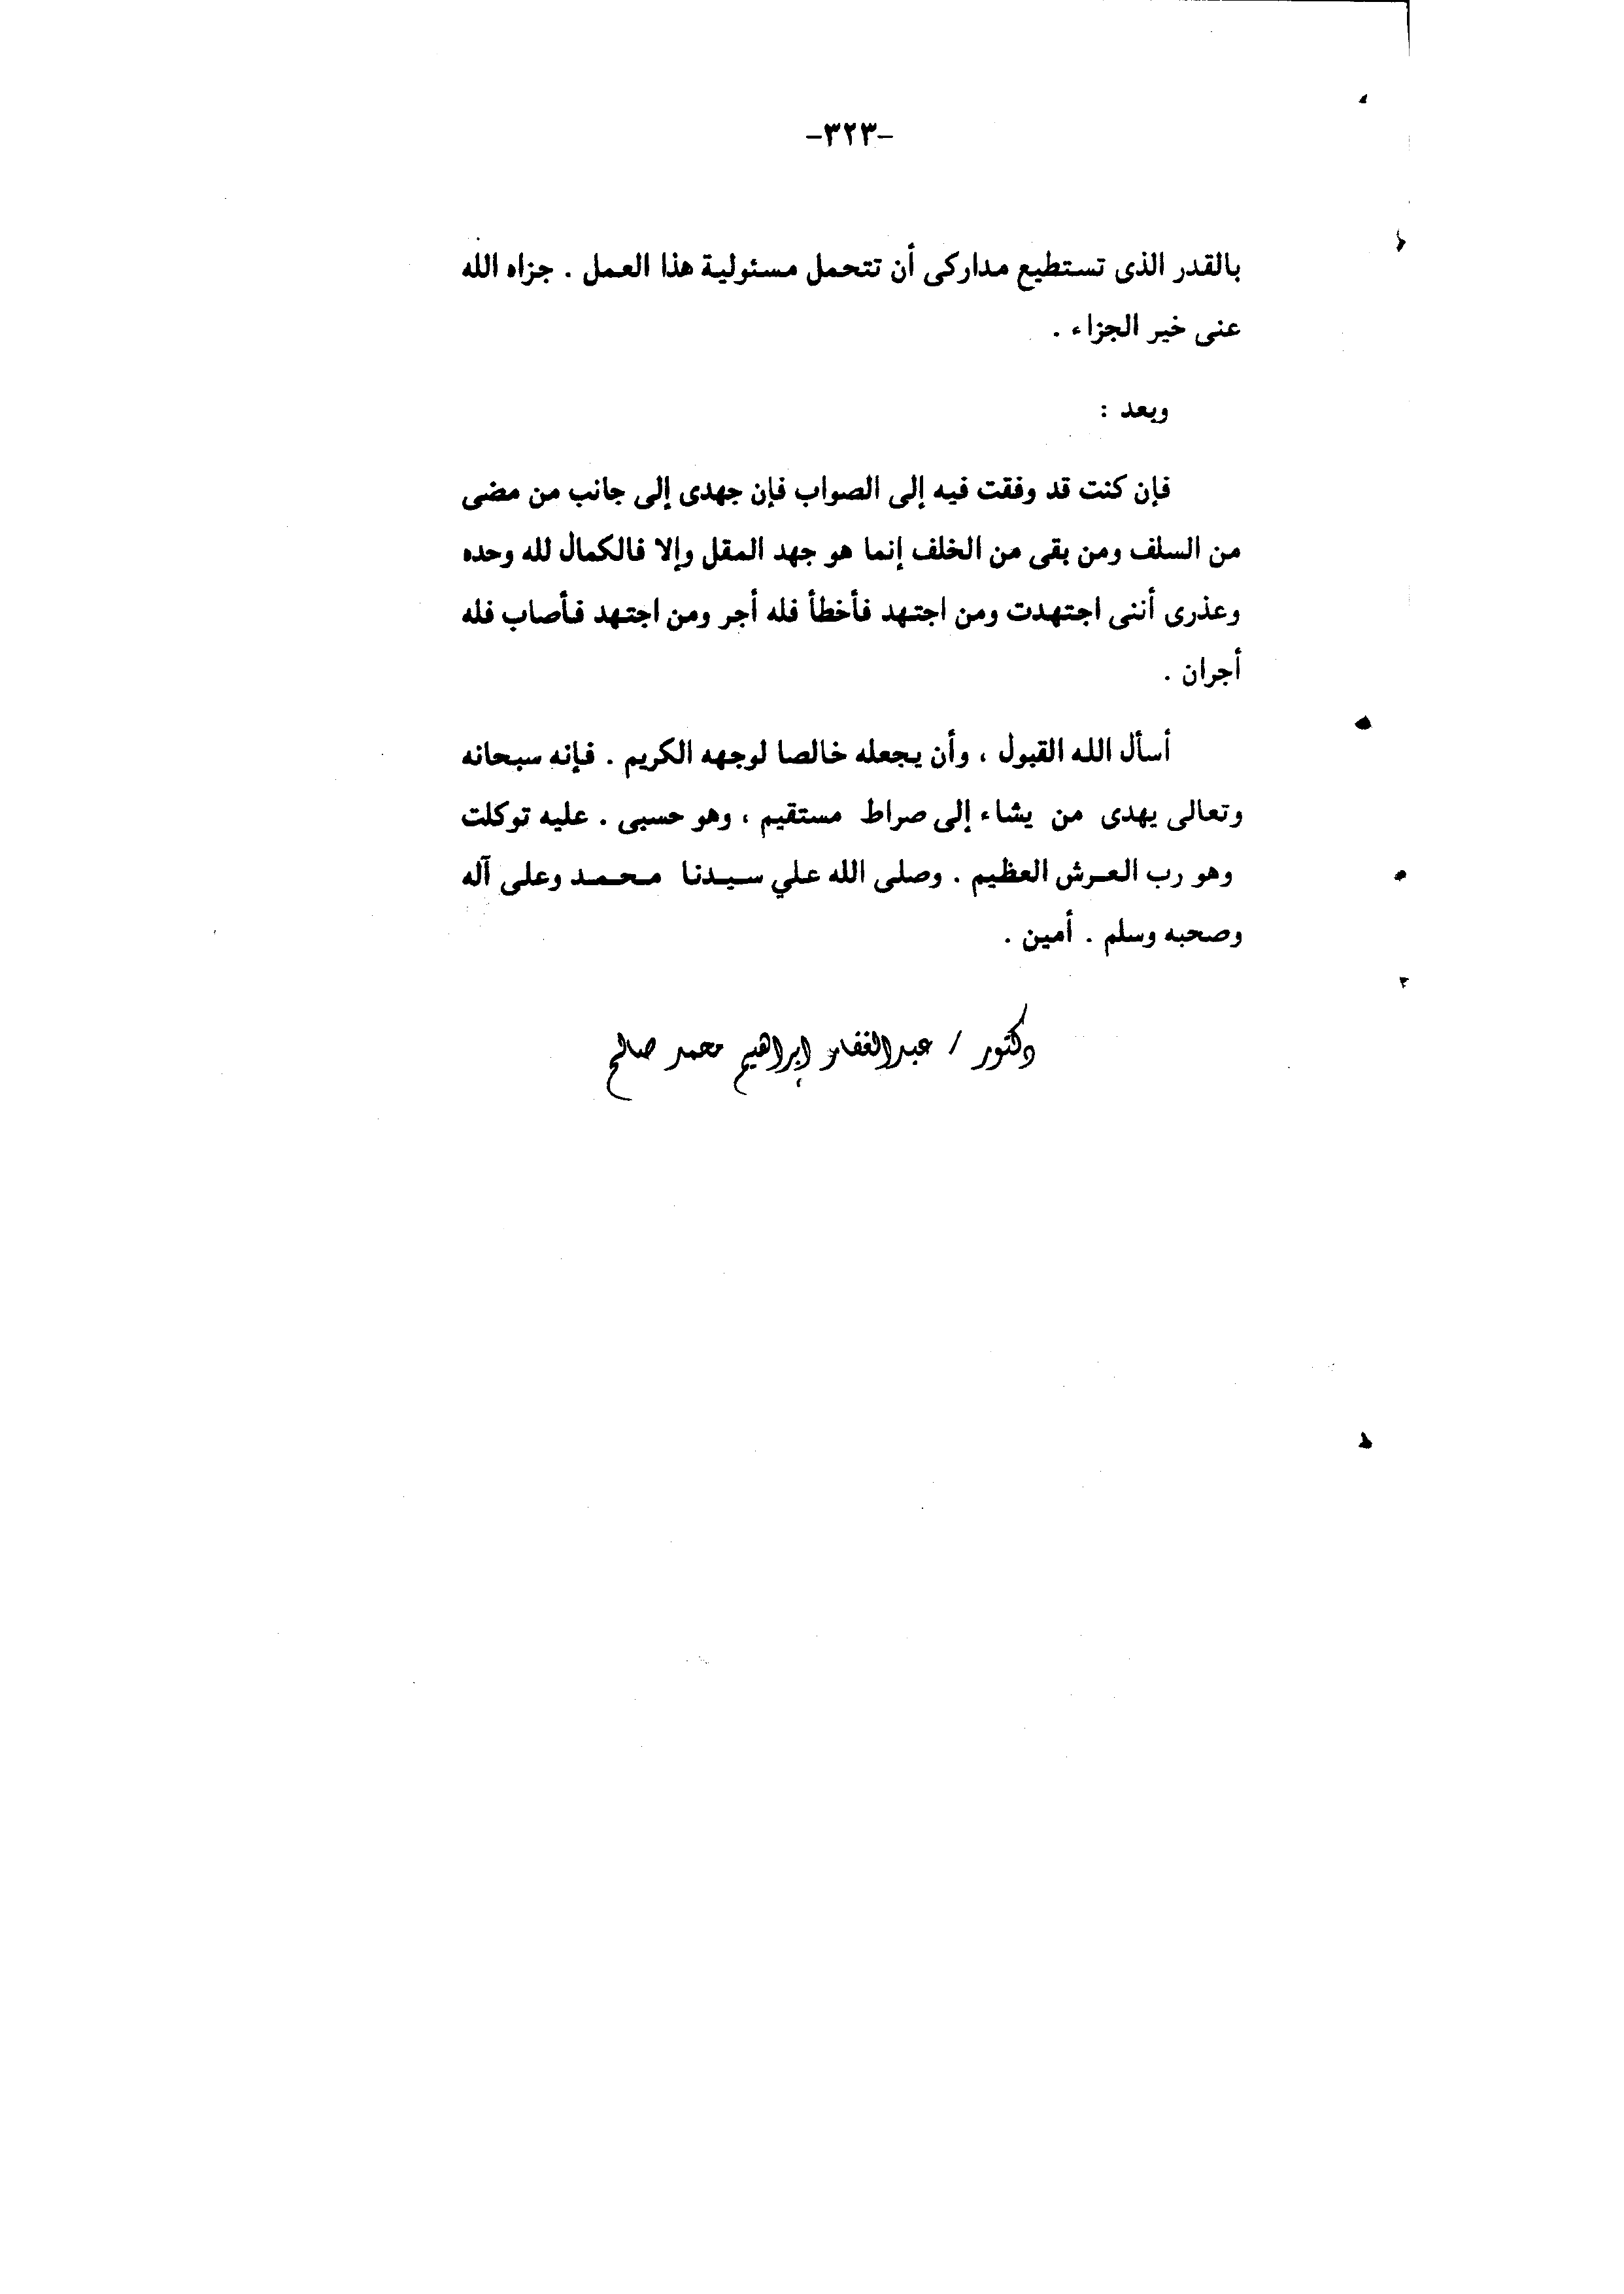 -٣٢٣-
بالقدر الذى تستطيع مداركى أن تتحمل مسئولية هذا العمل . جزاه الله
عنى خير الجزاء .
وبعد :
فإن كنت قد وفقت فيه إلى الصواب فإن جهدى إلى جانب من مضى
من السلف ومن بقى من الخلف إنما هو جهد المقل وإلا فالكمال لله وحده
وعذرى أننى اجتهدت ومن اجتهد فأخطأ فله أجر ومن اجتهد فأصاب فله
أجران .
أسأل الله القبول ، وأن يجعله خالصا لوجهه الكريم . فإنه سبحانه
وتعالى يهدى من يشاء إلى صراط مستقيم ، وهو حسبى . عليه توكلت
وهو رب العرش العظيم . وصلى الله علي سيدنا محمد وعلى آله
وصحبه وسلم . أمين .
دكتور / عبدالغفار إبراهيم محمد صالح